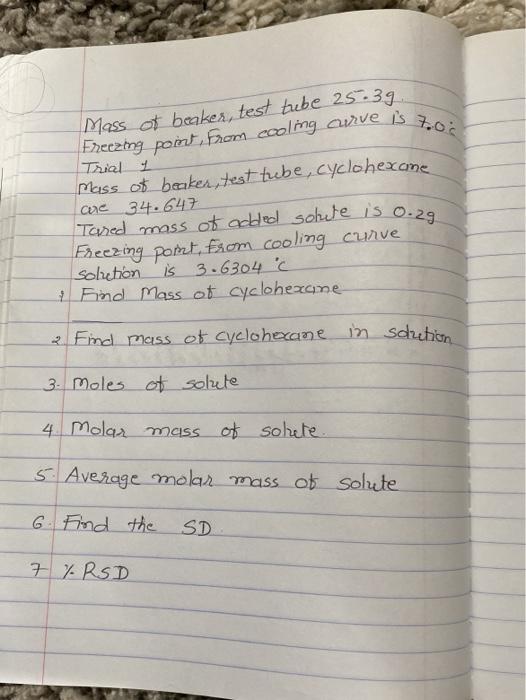 Mass of beaker, test tube 25.39.
Freezing point, from cooling curve is 7.0°c
Trial 1
Mass of beaker, test tube, cyclohexane
are 34.647
Tared mass of added solute is 0.29
Freezing point, from cooling curve
solution is 3.6304 °c
1 Find Mass of cyclohexane
2 Find mass of cyclohexane in solution
3. Moles of solute
4. Molar mass of solute.
5. Average molar mass of solute
6. Find the SD.
7 % RSD